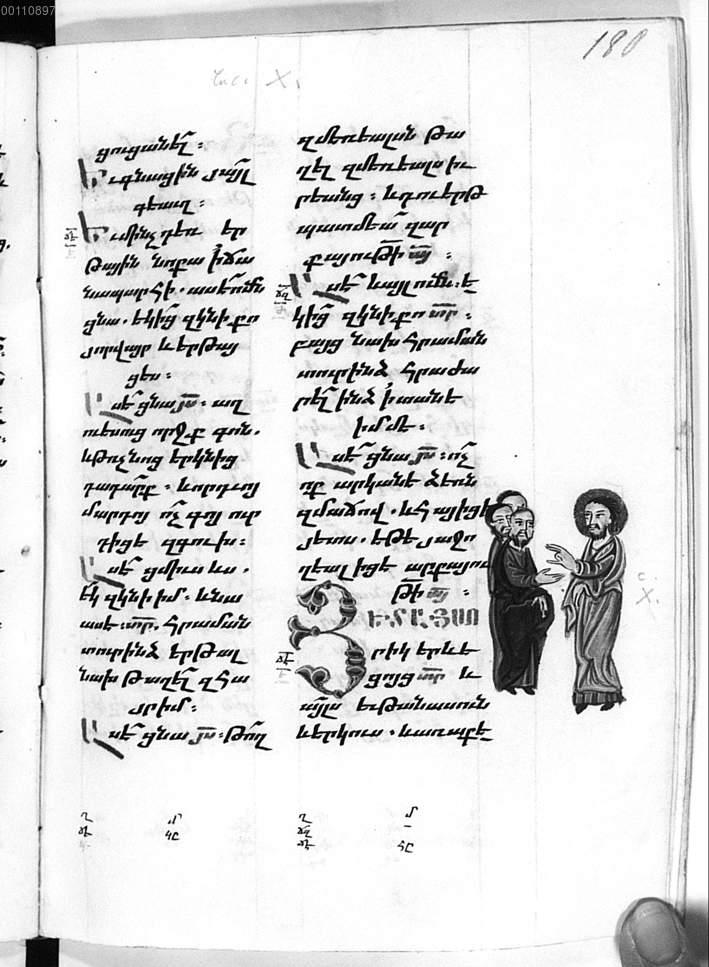 00110897
180
Luc. X.
ցուցանել։
Եւ գնացին յայլ
գեաւղ։
Եւ մինչդեռ եր
թային նոքա ի ճա
նապարհի. ասէ ոմն
ցնա. եկից զկնի քո
յոր վայր և երթայ
ցես։
Ասէ ցնա յս։ աղ
ուեսուց որջք գոն.
և թռչնոց երկնից
դադարք։ և որդւոյ
մարդոյ ոչ գոյ ուր
դիցէ զգուխ։
Ասէ ցմիւս ևս.
եկ զկնի իմ. և նա
ասէ։ տր. հրաման
տուր ինձ երթալ
նախ թաղել զհա
յր իմ։
Ասէ ցնա յս։ թող
զմեռեալսն թա
ղել զմեռեալս իւ
րեանց։ և դու երթ
պատմեա զար
քայութի այ։
Ասէ և այլ ոմն։ ե
կից զկնի քո տր։
բայց նախ հրաման
տուր ինձ հրաժա
րել ինձ ի տանէ
իմմէ։
Ասէ ցնա յս։ ոչ
ոք արկանէ ձեռն
զմաճով. և հայիցի
յետս. եթե յաջո
ղեալ իցէ արքայու
թի այ։
ՅԵՏ ԱՅՍՈ
րիկ երևե
ցոյց տր և
այլս եւթանասուն
և երկուս. և առաքե
c.
X.